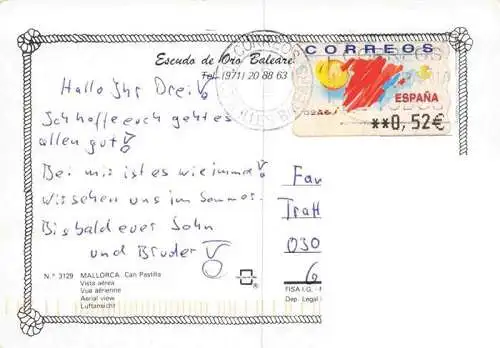 Escudo de Oro Baleare
Tel. (971) 20 88 63
CORREOS
CORREOS
ESPAÑA
**0,52€
Hallo Ihr Drei!
Ich hoffe euch geht es
allen gut!
Bei mir ist es wie immer!
Wir sehen uns im Sommer.
Bis bald euer Sohn
und Bruder!
Fam
Tratt
030
6
N.º 3129 MALLORCA. Can Pastilla
Vista aérea
Vue aérienne
Aerial view
Luftansicht
FISA I.G. -
Dep. Legal